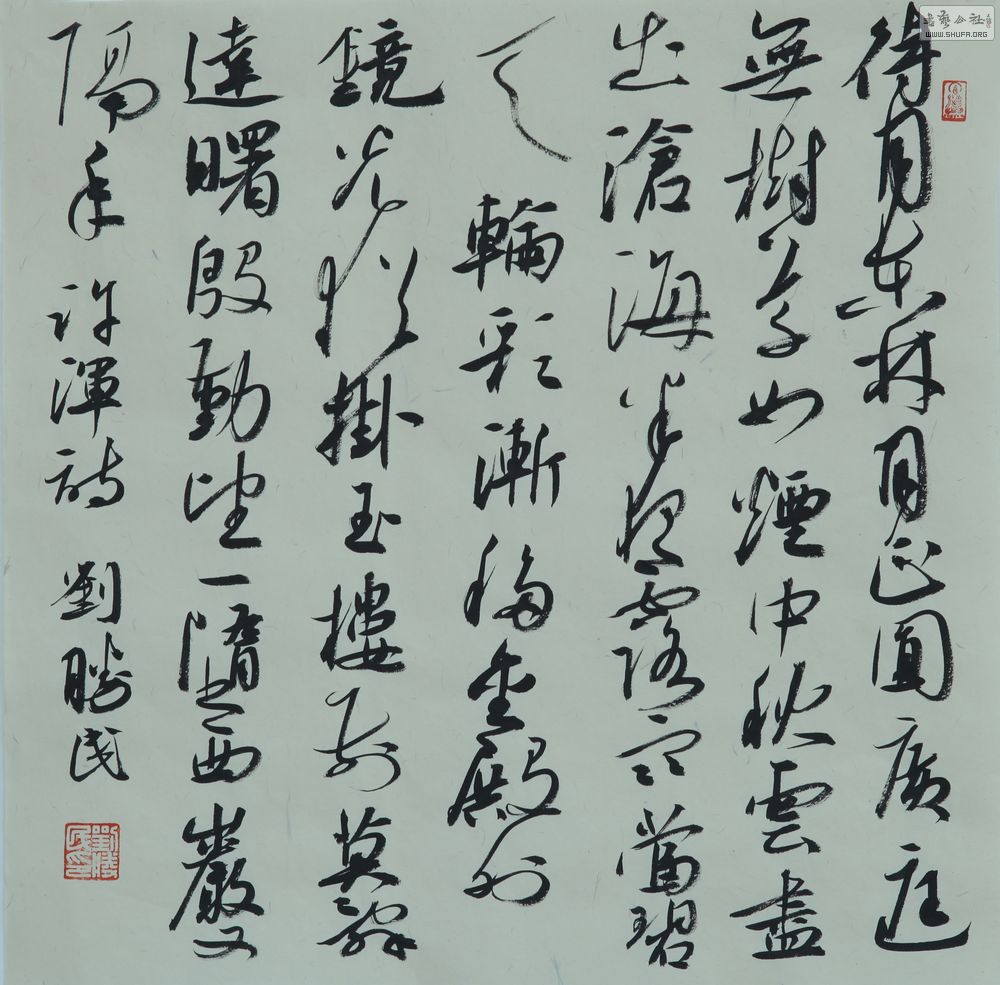 待月東林月正圓廣庭
無樹草如煙中秋雲盡
出滄海半夜露寒當碧
天輪彩漸移金殿外
鏡光猶掛玉樓前莫辭
達曙殷勤望一墮西巖又
隔年 許渾詩 劉勝民
劉勝民印
書藝公社
WWW.SHUFA.ORG